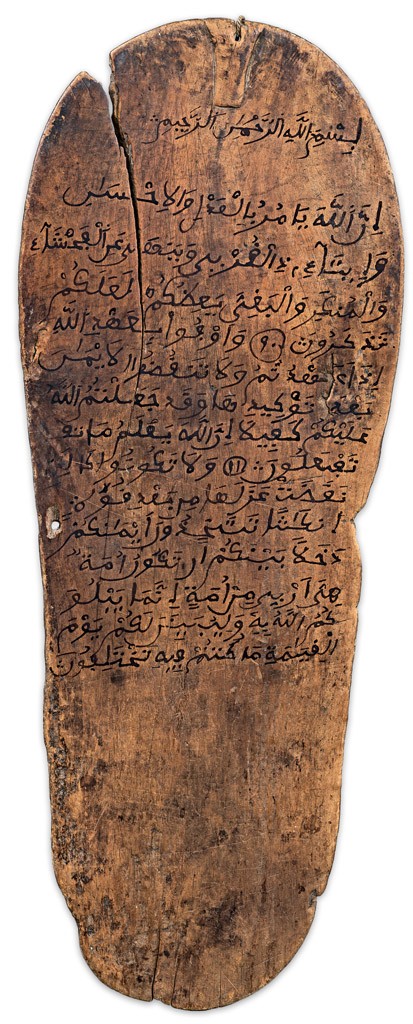 بِسْمِ اللَّهِ الرَّحْمَٰنِ الرَّحِيمِ
إِنَّ اللَّهَ يَامُرُ بِالْعَدْلِ وَالِاحْسَانِ
وَإِيتَآءِ ذِي الْقُرْبَىٰ وَيَنْهَىٰ عَنِ الْفَحْشَآءِ
وَالْمُنكَرِ وَالْبَغْيِ يَعِظُكُمْ لَعَلَّكُمْ
تَذَكَّرُونَ (٩٠) وَأَوْفُوا بِعَهْدِ اللَّهِ
إِذَا عَهَدتُّمْ وَلَا تَنقُضُوا الَايْمَانَ
بَعْدَ تَوْكِيدِهَا وَقَدْ جَعَلْتُمُ اللَّهَ
عَلَيْكُمْ كَفِيلًا إِنَّ اللَّهَ يَعْلَمُ مَا تَفْ
تَفْعَلُونَ (٩١) وَلَا تَكُونُوا كَالتِي
نَقَضَتْ غَزْلَهَا مِن بَعْدِ قُوَّةٍ
أَنكَاثًا تَتَّخِذُونَ أَيْمَانَكُمْ
دَخَلًا بَيْنَكُمْ أَن تَكُونَ أُمَّةٌ
هِيَ أَرْبَىٰ مِنُ امَّةٍ إِنَّمَا يَبْلُو
كُمُ اللَّهُ بِهِ وَلَيُبَيِّنَنَّ لَكُمْ يَوْمَ
الْقِيَمَةِ مَا كُنتُمْ فِيهِ تَخْتَلِفُونَ